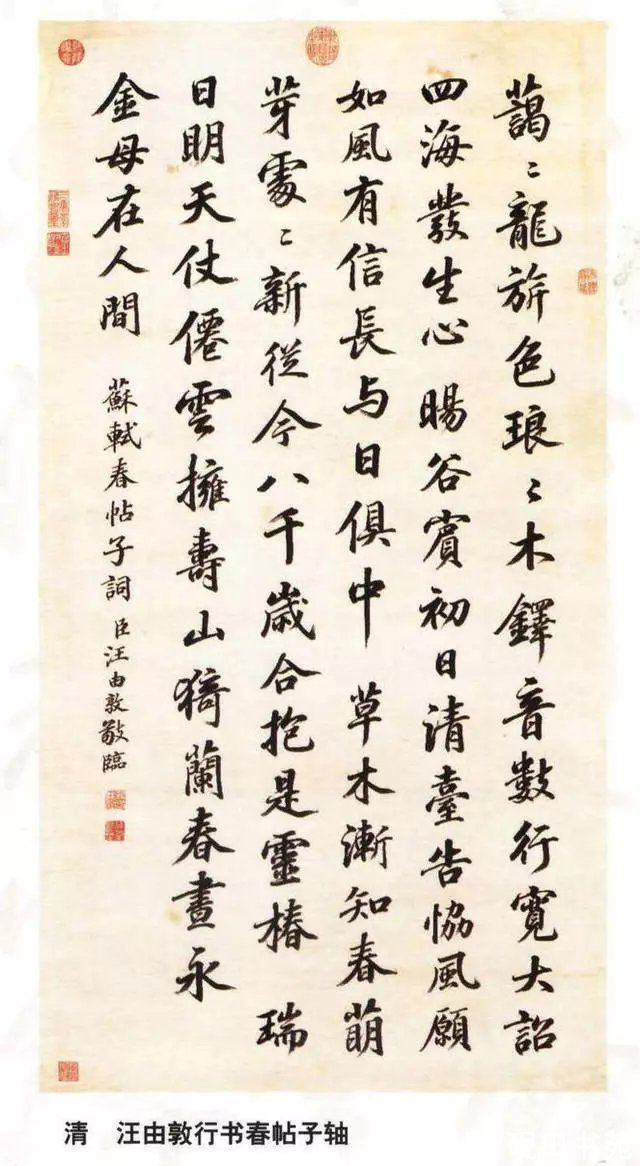 藹〻龍旂色琅〻木鐸音數行寬大詔
四海發生心 暘谷賓初日清臺告協風願
如風有信長与日俱中 草木漸知春萌
芽處〻新從今八千歲合抱是靈椿 瑞
日明天仗僊雲擁壽山猗蘭春晝永
金母在人間
蘇軾春帖子詞 臣汪由敦敬臨
清 汪由敦行书春帖子轴